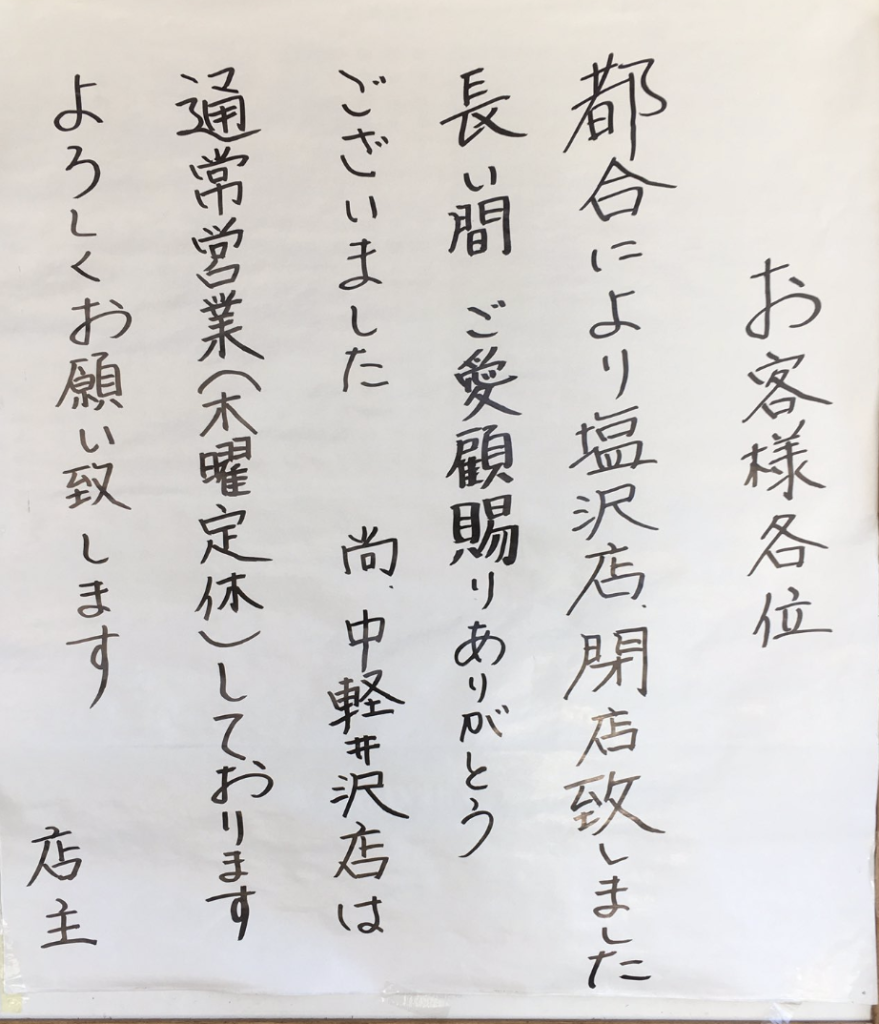 お客様各位
都合により塩沢店、閉店致しました
長い間 ご愛顧賜りありがとう
ございました 尚、中軽井沢店は
通常営業(木曜定休)しております
よろしくお願い致します
店主